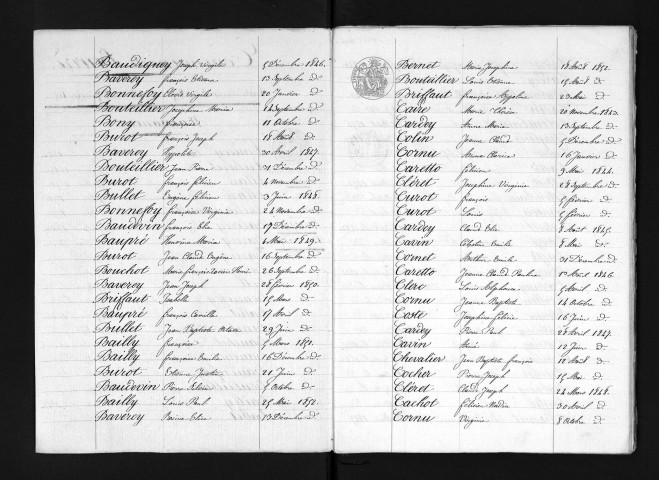 Baudiquey Joseph Virgile 5 Décembre 1846.
Baverey françois Etienne 13 Septembre do
Bonnefoy Clovis Virgile 20 Janvier do
Bouteillier Josephine Maria 14 Septembre do
Bony françoise 11 Octobre do
Burot françois Joseph 18 Août do
Baverey Hypolite 30 Avril 1847.
Bouteillier Jean Pierre 31 Décembre do
Burot françois félicien 4 Novembre do
Bullet Eugène félicien 3 Juin 1848.
Bonnefoy françoise Virginie 24 Novembre do
Baudevin françois Elie 17 Décembre do
Baupré Maria 4 Mai 1849.
Burot Jean Claude Eugène 16 Septembre do
Bouchot Marie françois Xavier 26 Septembre do
Baverey Jean Joseph 28 février 1850.
Briffaut Isabelle 15 Mars do
Baupré françois Camille 17 Avril do
Bullet Jean Baptiste 29 Juin do
Bailly françoise 5 Mars 1851.
Bailly françoise Emilie 16 Décembre do
Burot Etienne Justin 21 Juin do
Baudevin Pierre 7 Octobre do
Bailly Louis Paul 25 Mai 1852.
Baverey 13 Décembre do
Bernet Marie Josephine 18 Août 1852.
Bouteillier Louis Etienne 15 Août do
Briffaut françoise 2 Mai do
Caire Marie 20 Novembre 1843.
Cardey Anne Marie 13 Septembre do
Colin Jeanne Claude 5 Décembre do
Cornu Anne Clarice 16 Janvier do
Caretto félicien 9 Mai 1844.
Cléret Josephine Virginie 28 Septembre do
Curot françois 5 février do
Curot Louis 5 février do
Cardey Claude Elie 8 Août 1845.
Cavin Célestin Emile 8 Mai do
Cornet Emile 31 Décembre do
Caretto Jeanne Claude Pauline 1er Août 1846.
Clerc Louis Alphonse 5 Avril do
Cornu Jeanne Baptiste 14 Octobre do
Coste Josephine félicie 16 Juin do
Cardey Pierre Paul 28 Avril 1847.
Cavin 12 Juin do
Chevalier Jean Baptiste françois 12 Août do
Cocher Pierre Joseph 15 Mai do
Cléret Claude Joseph 24 Mars 1848.
Cachot félicien 30 Avril do
Cornu Virginie 8 Octobre do